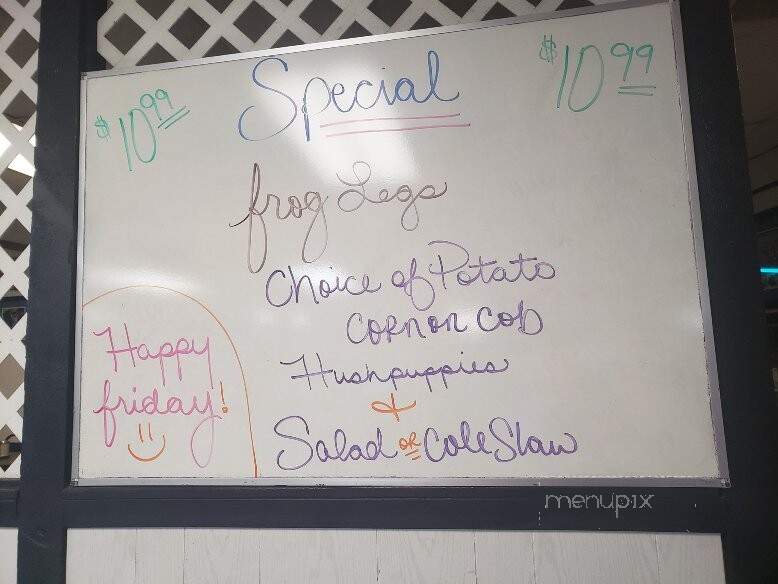 $10.99 Special $10.99
frog Legs
Choice of Potato
CORN on COB
Hushpuppies
+
Salad OR Cole Slaw
Happy
friday!
menupix